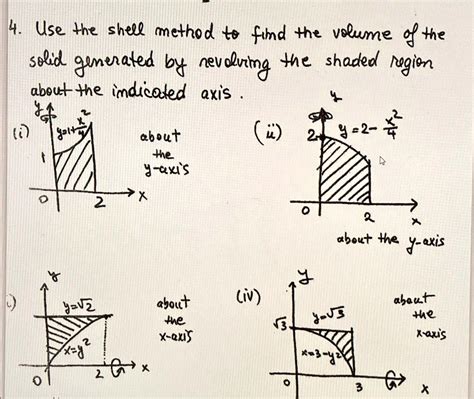 4. Use the shell method to find the volume of the
solid generated by revolving the shaded region
about the indicated axis.
(i) y y=1+x²/4 1 0 2 x about the y-axis
(ii) y 2 y=2-x²/4 0 2 x about the y-axis
) y y=√2 x=y² 0 2 x about the x-axis
(iv) y √3 y=√3 x=3-y² 0 3 x about the x-axis